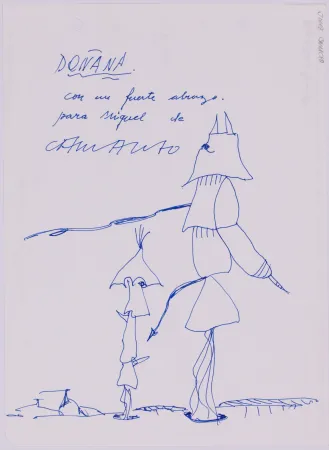 DOÑANA.
con un fuerte abrazo.
para Miguel de
CAMANTO